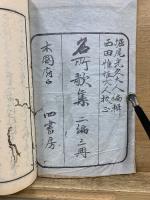 堀尾光久大人編輯
西田惟恒大人校正
名所歌集 二編 三冊
四書房